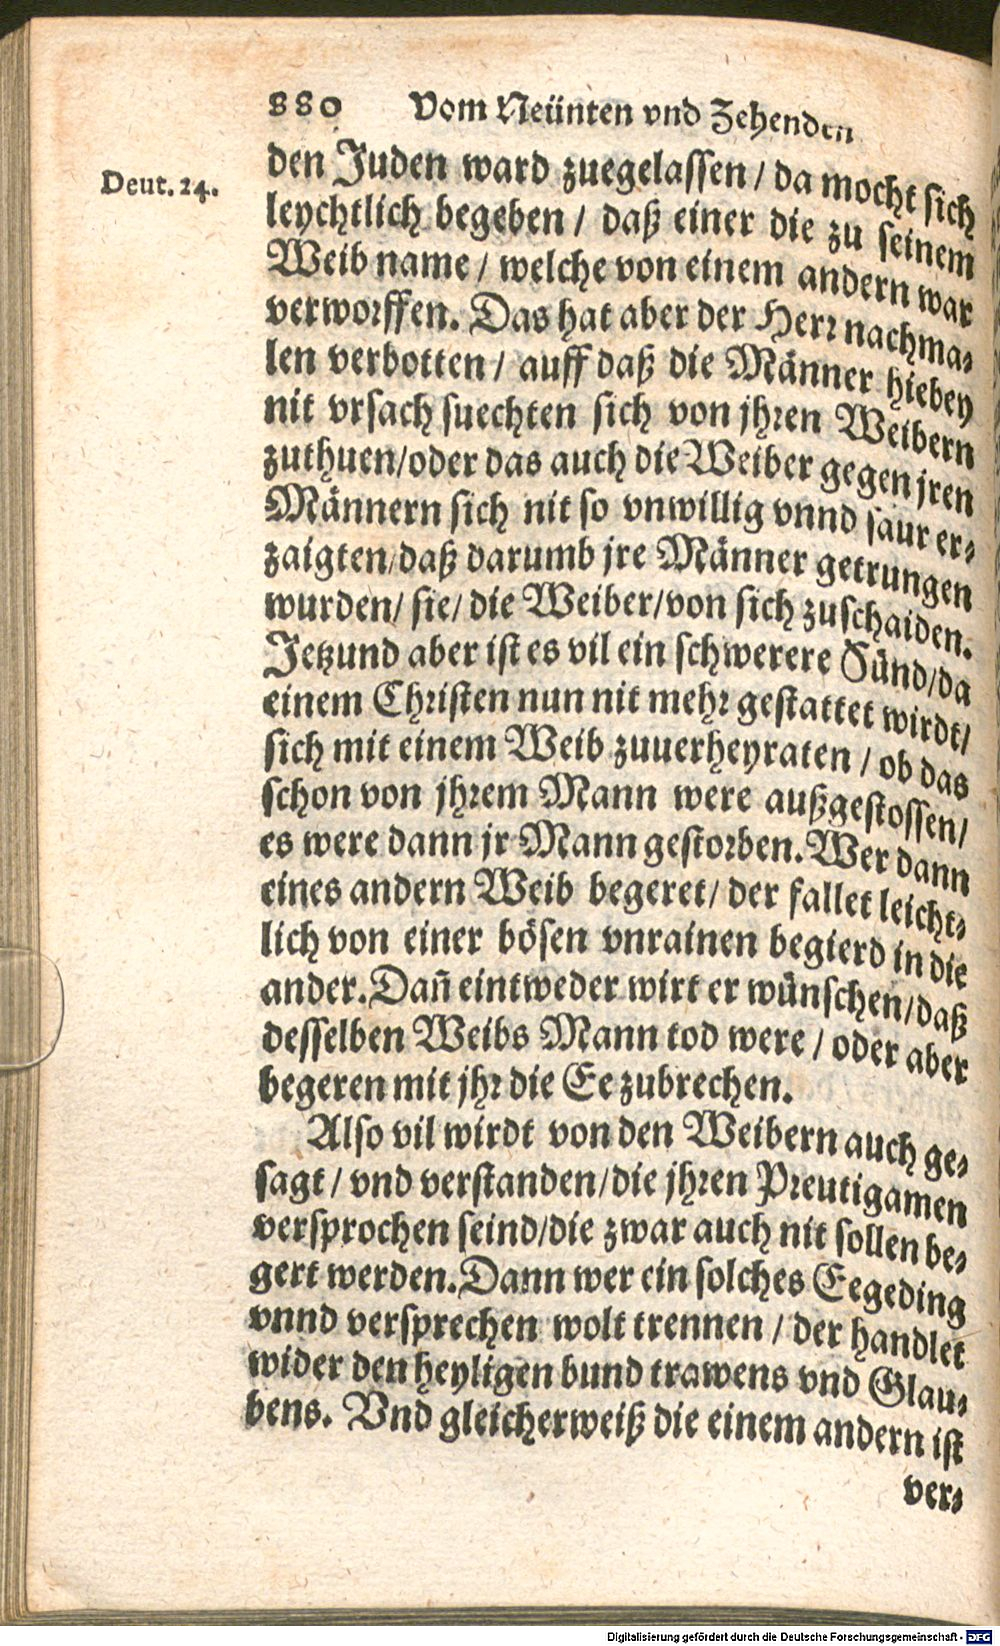 880 Vom Neünten vnd Zehenden
Deut. 24.
den Juden ward zuegelassen / da mocht sich
leychtlich begeben / daß einer die zu seinem
Weib name / welche von einem andern war
verworffen. Das hat aber der Herr nachma-
len verbotten / auff daß die Männer hiebey
nit vrsach suechten sich von jhren Weibern
zuthuen/oder das auch die Weiber gegen jren
Männern sich nit so vnwillig vnnd saur er-
zaigten/daß darumb jre Männer getrungen
wurden/ sie/ die Weiber/von sich zuschaiden.
Jetzund aber ist es vil ein schwerere Sünd/da
einem Christen nun nit mehr gestattet wirdt/
sich mit einem Weib zuuerheyraten / ob das
schon von jhrem Mann were außgestossen/
es were dann jr Mann gestorben. Wer dann
eines andern Weib begeret/ der fallet leicht-
lich von einer bösen vnrainen begierd in die
ander. Dañ eintweder wirt er wünschen/daß
desselben Weibs Mann tod were / oder aber
begeren mit jhr die Ee zubrechen.
Also vil wirdt von den Weibern auch ge-
sagt / vnd verstanden/die jhren Preutigamen
versprochen seind/die zwar auch nit sollen be-
gert werden. Dann wer ein solches Eegeding
vnnd versprechen wolt trennen / der handlet
wider den heyligen bund trawens vnd Glau-
bens. Vnd gleicherweiß die einem andern ist
ver-
Digitalisierung gefördert durch die Deutsche Forschungsgemeinschaft - DFG